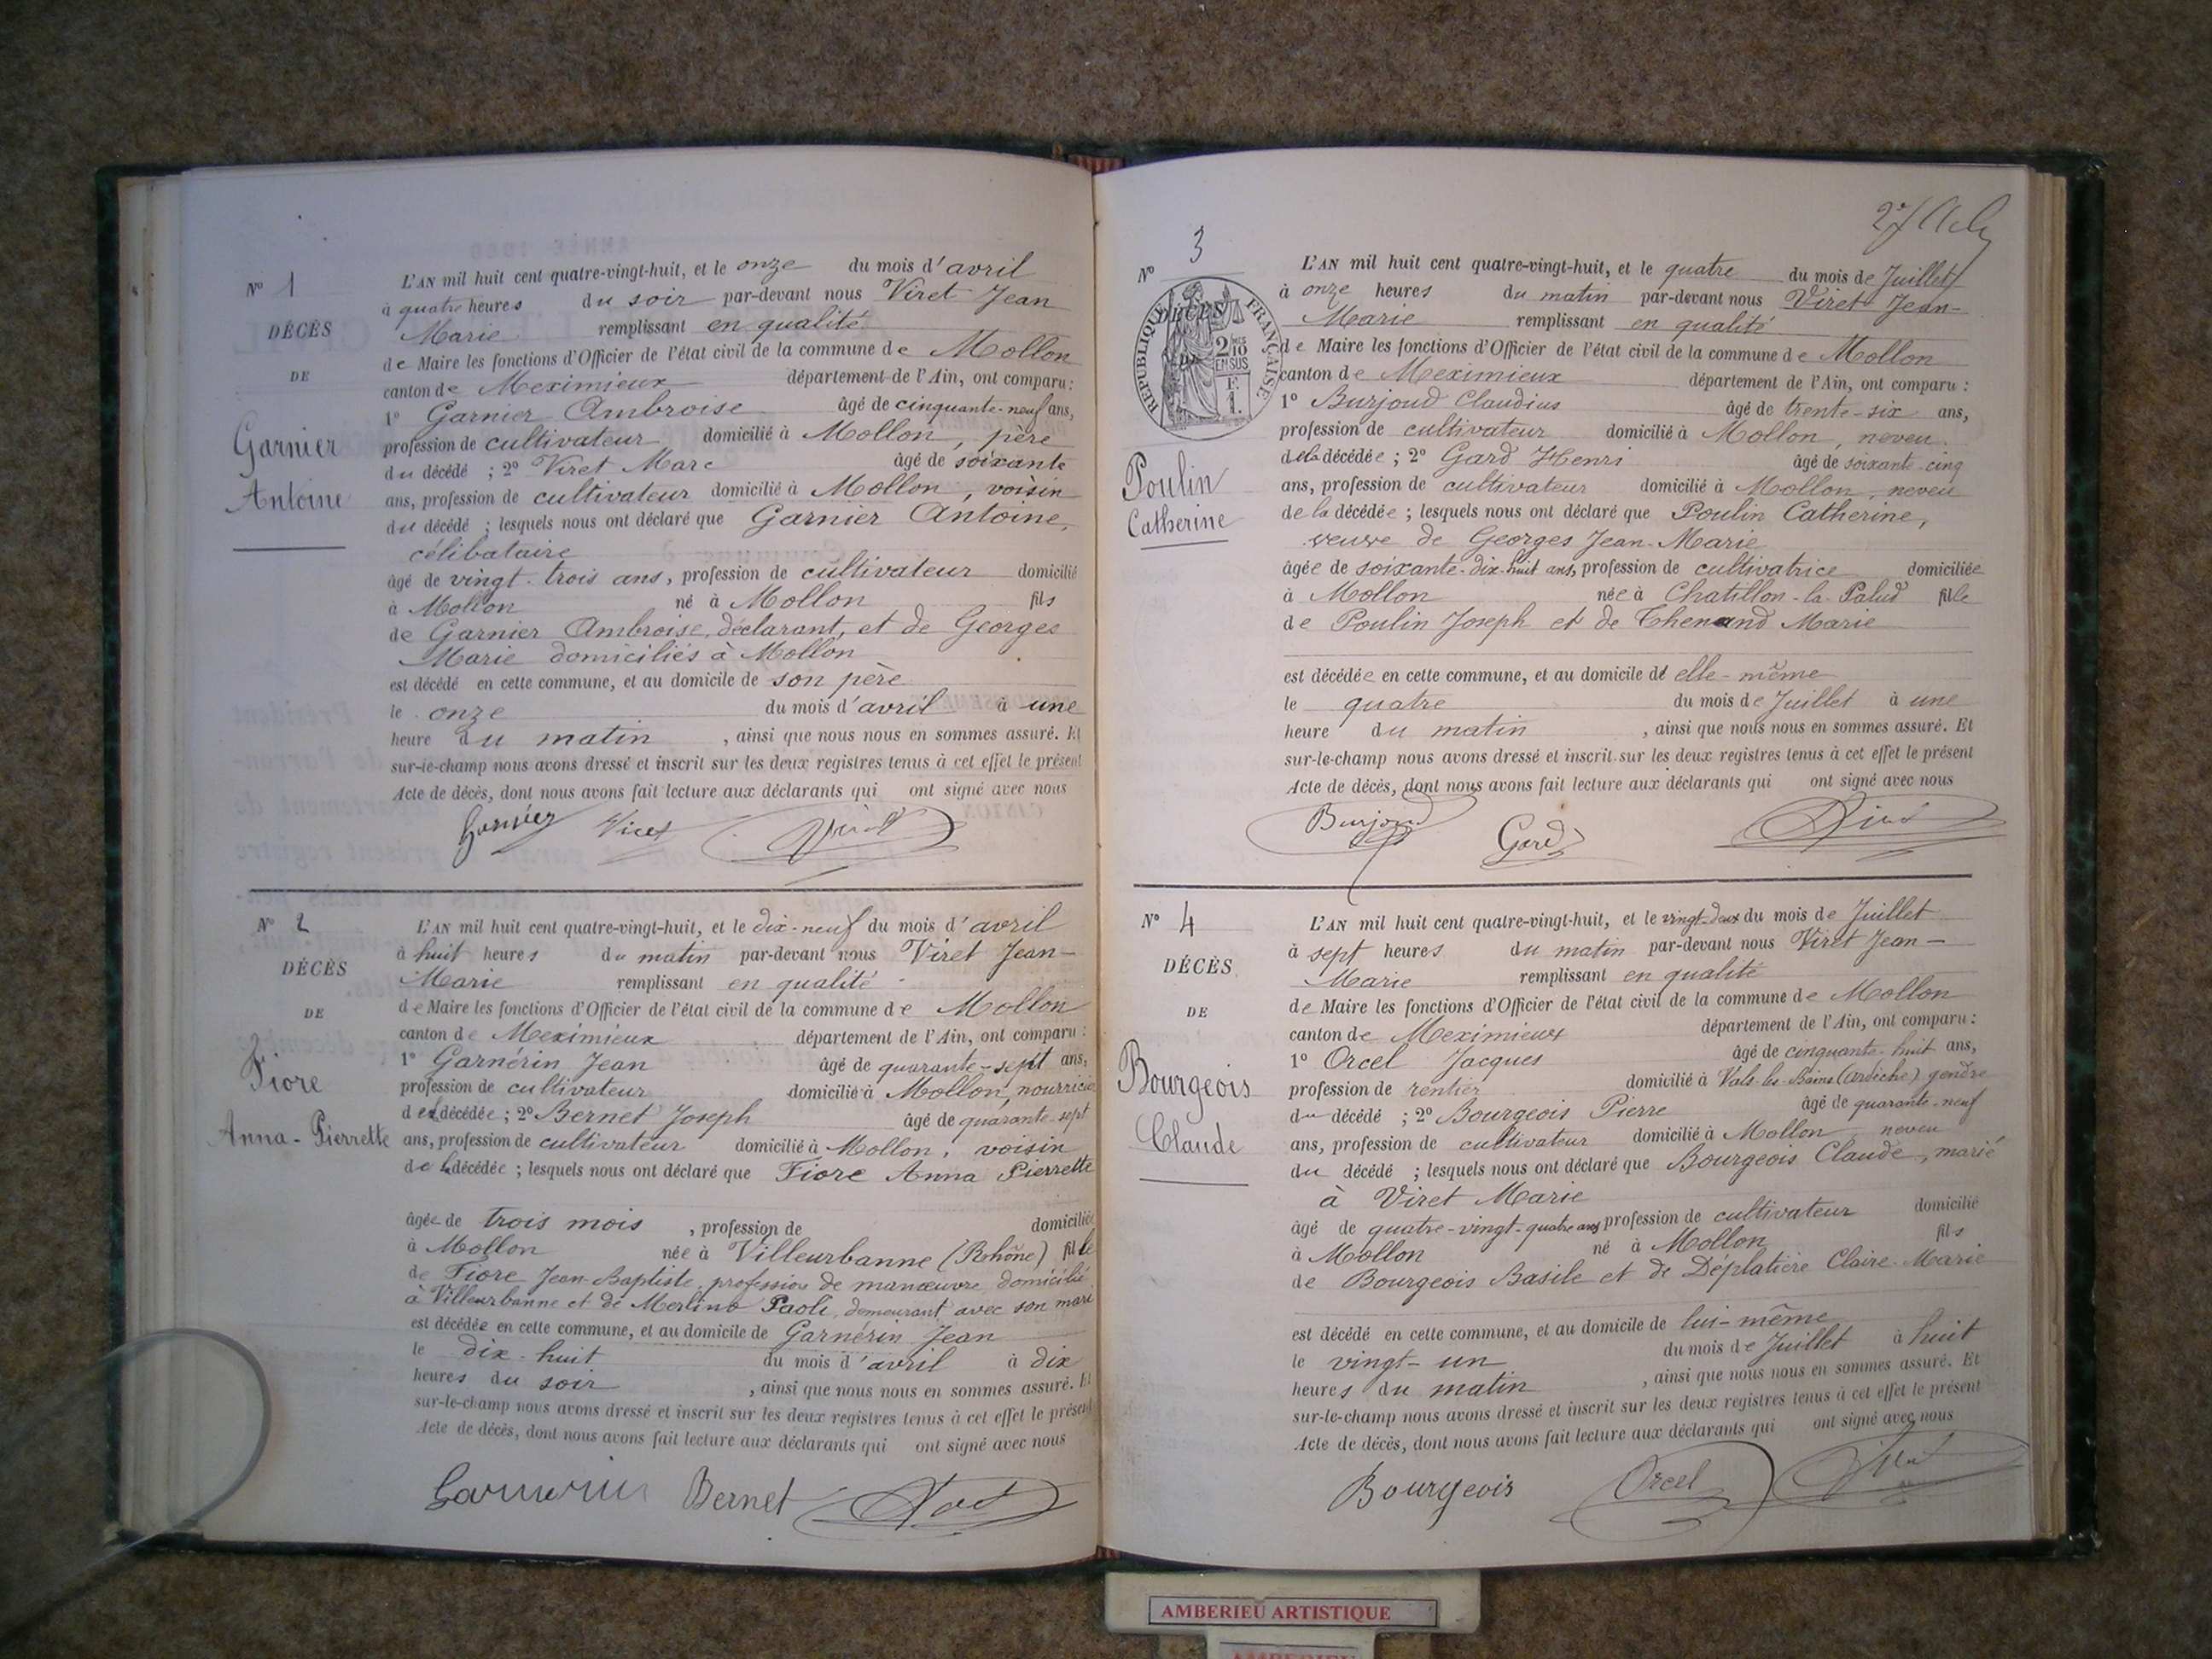 Nº 1
DÉCÈS
DE
Garnier
Antoine
L'AN mil huit cent quatre-vingt-huit, et le onze du mois d'avril
à quatre heures du soir par-devant nous Viret Jean
Marie remplissant en qualité
de Maire les fonctions d'Officier de l'état civil de la commune de Mollon
canton de Meximieux département de l'Ain, ont comparu :
1º Garnier Ambroise âgé de cinquante-neuf ans,
profession de cultivateur domicilié à Mollon, père
du décédé ; 2º Viret Marc âgé de soixante
ans, profession de cultivateur domicilié à Mollon, voisin
du décédé ; lesquels nous ont déclaré que Garnier Antoine,
célibataire
âgé de vingt-trois ans, profession de cultivateur domicilié
à Mollon né à Mollon fils
de Garnier Ambroise, déclarant, et de Georges
Marie domiciliés à Mollon
est décédé en cette commune, et au domicile de son père
le onze du mois d'avril à une
heure du matin, ainsi que nous nous en sommes assuré. Et
sur-le-champ nous avons dressé et inscrit sur les deux registres tenus à cet effet le présent
Acte de décès, dont nous avons fait lecture aux déclarants qui ont signé avec nous
Garnier Viret Viret
Nº 2
DÉCÈS
DE
Fiore
Anna-Pierrette
L'AN mil huit cent quatre-vingt-huit, et le dix-neuf du mois d'avril
à huit heures du matin par-devant nous Viret Jean-
Marie remplissant en qualité
de Maire les fonctions d'Officier de l'état civil de la commune de Mollon
canton de Meximieux département de l'Ain, ont comparu :
1º Garnérin Jean âgé de quarante-sept ans,
profession de cultivateur domicilié à Mollon, nourricier
de la décédée ; 2º Bernet Joseph âgé de quarante-sept
ans, profession de cultivateur domicilié à Mollon, voisin
de la décédée ; lesquels nous ont déclaré que Fiore Anna Pierrette
âgée de trois mois, profession de domiciliée
à Mollon née à Villeurbanne (Rhône) fille
de Fiore Jean-Baptiste, profession de manœuvre, domicilié
à Villeurbanne et de Merlino Paoli, demeurant avec son mari
est décédée en cette commune, et au domicile de Garnérin Jean
le dix-huit du mois d'avril à dix
heures du soir, ainsi que nous nous en sommes assuré. Et
sur-le-champ nous avons dressé et inscrit sur les deux registres tenus à cet effet le présent
Acte de décès, dont nous avons fait lecture aux déclarants qui ont signé avec nous
Garnerin Bernet Viret
Nº 3
RÉPUBLIQUE FRANÇAISE
2/10 EN SUS
DÉCÈS
DE
Poulin
Catherine
L'AN mil huit cent quatre-vingt-huit, et le quatre du mois de Juillet
à onze heures du matin par-devant nous Viret Jean-
Marie remplissant en qualité
de Maire les fonctions d'Officier de l'état civil de la commune de Mollon
canton de Meximieux département de l'Ain, ont comparu :
1º Burjoud Claudius âgé de trente-six ans,
profession de cultivateur domicilié à Mollon, neveu
de la décédée ; 2º Gard Henri âgé de soixante-cinq
ans, profession de cultivateur domicilié à Mollon, neveu
de la décédée ; lesquels nous ont déclaré que Poulin Catherine,
veuve de Georges Jean-Marie
âgée de soixante-dix-huit ans, profession de cultivatrice domiciliée
à Mollon née à Chatillon-la-Palud fille
de Poulin Joseph et de Thenand Marie
est décédée en cette commune, et au domicile de elle-même
le quatre du mois de Juillet à une
heure du matin, ainsi que nous nous en sommes assuré. Et
sur-le-champ nous avons dressé et inscrit sur les deux registres tenus à cet effet le présent
Acte de décès, dont nous avons fait lecture aux déclarants qui ont signé avec nous
Burjoud Gard Viret
Nº 4
DÉCÈS
DE
Bourgeois
Claude
L'AN mil huit cent quatre-vingt-huit, et le vingt-deux du mois de Juillet
à sept heures du matin par-devant nous Viret Jean-
Marie remplissant en qualité
de Maire les fonctions d'Officier de l'état civil de la commune de Mollon
canton de Meximieux département de l'Ain, ont comparu :
1º Orcel Jacques âgé de cinquante-huit ans,
profession de rentier domicilié à Vals-les-Bains (Ardèche) gendre
du décédé ; 2º Bourgeois Pierre âgé de quarante-neuf
ans, profession de cultivateur domicilié à Mollon neveu
du décédé ; lesquels nous ont déclaré que Bourgeois Claude, marié
à Viret Marie
âgé de quatre-vingt-quatre ans profession de cultivateur domicilié
à Mollon né à Mollon fils
de Bourgeois Basile et de Déplatière Claire-Marie
est décédé en cette commune, et au domicile de lui-même
le vingt-un du mois de Juillet à huit
heures du matin, ainsi que nous nous en sommes assuré. Et
sur-le-champ nous avons dressé et inscrit sur les deux registres tenus à cet effet le présent
Acte de décès, dont nous avons fait lecture aux déclarants qui ont signé avec nous
Bourgeois Orcel Viret
AMBERIEU ARTISTIQUE
AMBERIEU